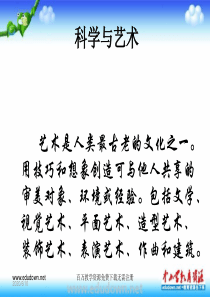 科学与艺术
艺术是人类最古老的文化之一。
用技巧和想象创造可与他人共享的
审美对象、环境或经验。包括文学、
视觉艺术、平面艺术、造型艺术、
装饰艺术、表演艺术、作曲和建筑。
www.edudown.net
百万教学资源免费下载无需注册
www.edudown.net